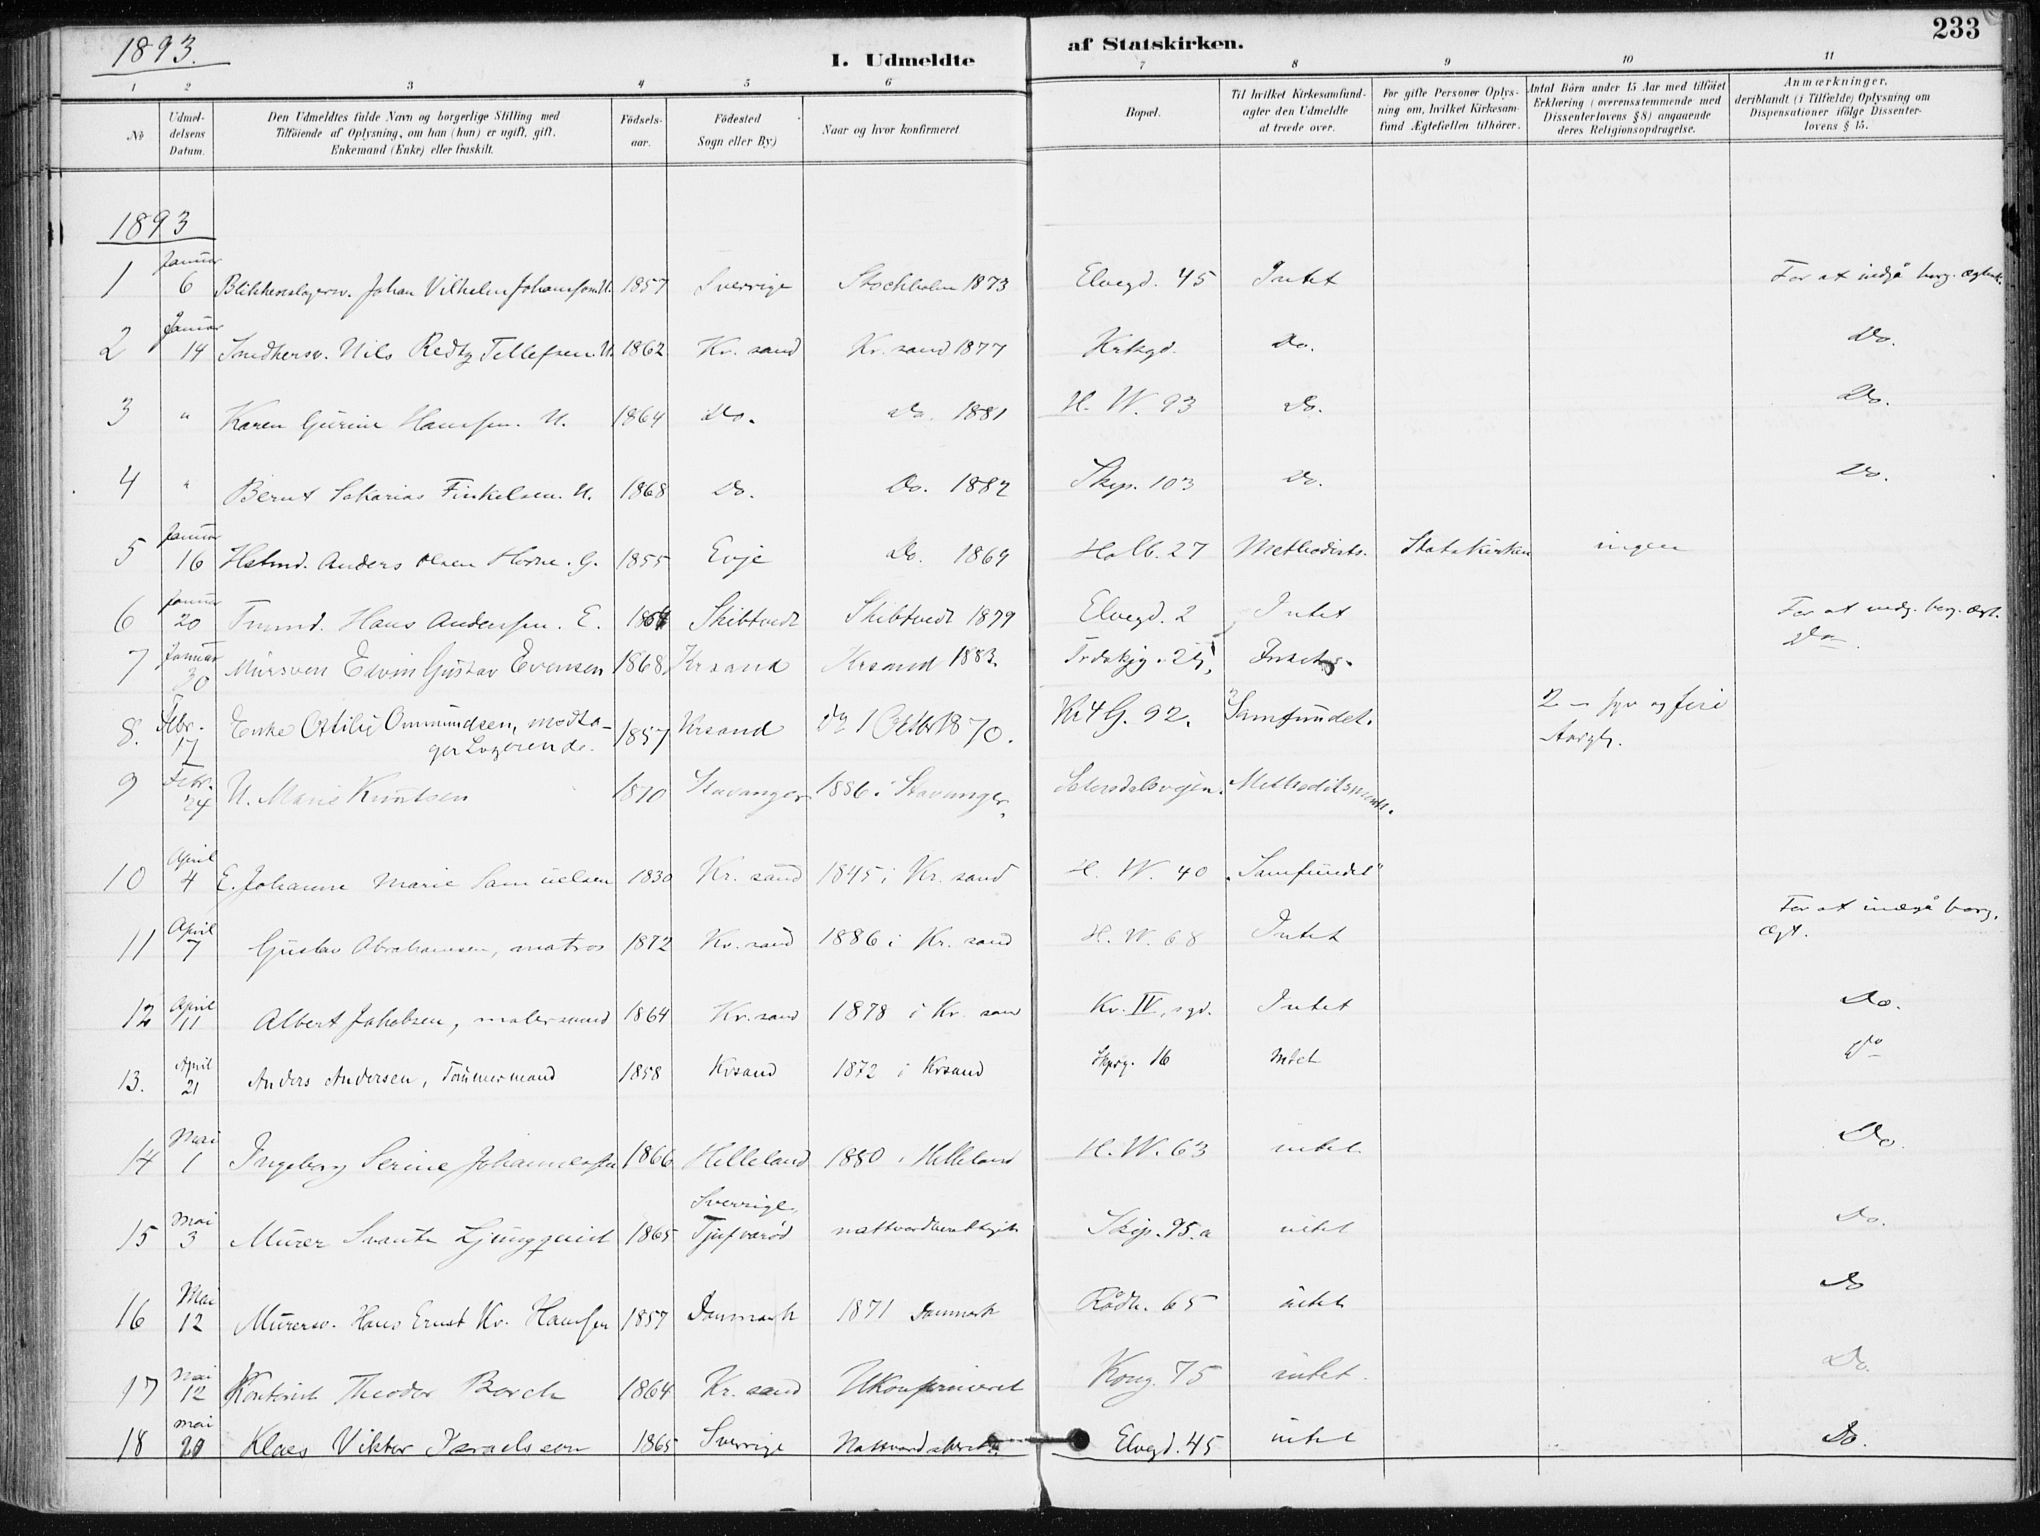 1893.
I. Udmeldte af Statskirken.
233
1 2 3 4 5 6 7 8 9 10 11
№
Udmeldelsens Datum.
Den Udmeldtes fulde Navn og borgerlige Stilling med Tilföiende af Oplysning, om han (hun) er ugift, gift, Enkemand (Enke) eller fraskilt.
Födselsaar.
Födested Sogn eller By)
Naar og hvor konfirmeret
Bopæl.
Til hvilket Kirkesamfund agter den Udmeldte at træde over.
For gifte Personer Oplysning om, hvilket Kirkesamfund Ægtefællen tilhörer.
Antal Börn under 15 Aar med tilföiet Erklæring (overensstemmende med Dissenterlovens § 8) angaaende deres Religionsopdragelse.
Anmærkninger, deriblandt (i Tilfælde) Oplysning om Dispensationer ifölge Dissenterlovens § 15.
1893
1 Januar 6 Blikkenslagersv. Johan Vilhelm Johansson U. 1857 Sverrige Stockholm 1873 Elvegd. 45 Intet For at indgå borg. ægtesk.
2 Januar 14 Smedkersv. Nils Tellefsen. U. 1862 Kr. sand Kr. sand 1877 Do. Do.
3 " Karen Gurine Hansen. U. 1864 Do. Do. 1881 H. W. 93 Do. Do.
4 " Bernt Sakarias Finkelsen. U. 1868 Do. Do. 1882 Skip. 103 Do. Do.
5 Januar 16 Anders Olsen Horne. G. 1855 Evje Do. 1869 Holb. 27 Methodists. Statskirken ingen
6 Januar 20 Hans Andersen. E. Skibtvedt Skibtvedt 1879 Elvegd. 2 Intet For at indg. borg. ægt.
7 Januar 30 Mursven Edvin Gustav Evensen 1868 Krsand Krsand 1883. Do
8. Febr. 17 Enke Ottilie Ommundsen, modtager Logerende. 1857 Krsand Do 1 Oktbr 1870. Kr 4 G. 92. "Samfundet. 2 – syv og fire Aargl.
9 Febr. 24 U. Marie Knutsen 1870 Stavanger 1886 i Stavanger, Setersdalsveien. Methodistmenh.
10 April 4 E. Johanne Marie Samuelsen 1830 Kr. sand 1845 i Kr. sand H. W. 40 „Samfundet"
11 April 7 Gustav Abrahamsen, matros 1872 Kr. sand 1886 i Kr. sand H. W. 68 Intet For at indgå borg. ægt.
12 April 11 Albert Jakobsen, malersvend 1864 Kr. sand 1878 i Kr. san Kr. IV, gd. Intet Do.
13. April 21 Anders Andersen, Tømmermand 1858 Krsand 1872 i Krsand Skprg. 16 Intet Do
14 Mai 1 Ingeborg Serine Johannessen 1866 Helleland 1880 i Helleland H. W. 63 intet Do.
15 Mai 3 Murer Svante Ljungquist 1865 Sverrige, nattvardberettiget Skip. 95. a intet Do.
16 Mai 12 Murersv. Hans Ernst Kr. Hansen 1857 Danmark 1871 Danmark Rådh. 65 intet Do
17 Mai 12 Kontorist Theodor Borch 1864 Kr. sand Ukonfirmeret Kong. 75 intet. Do.
18 Mai 20 Klaes Viktor Israelsson 1865 Sverrige Elvegd. 45 intet Do.